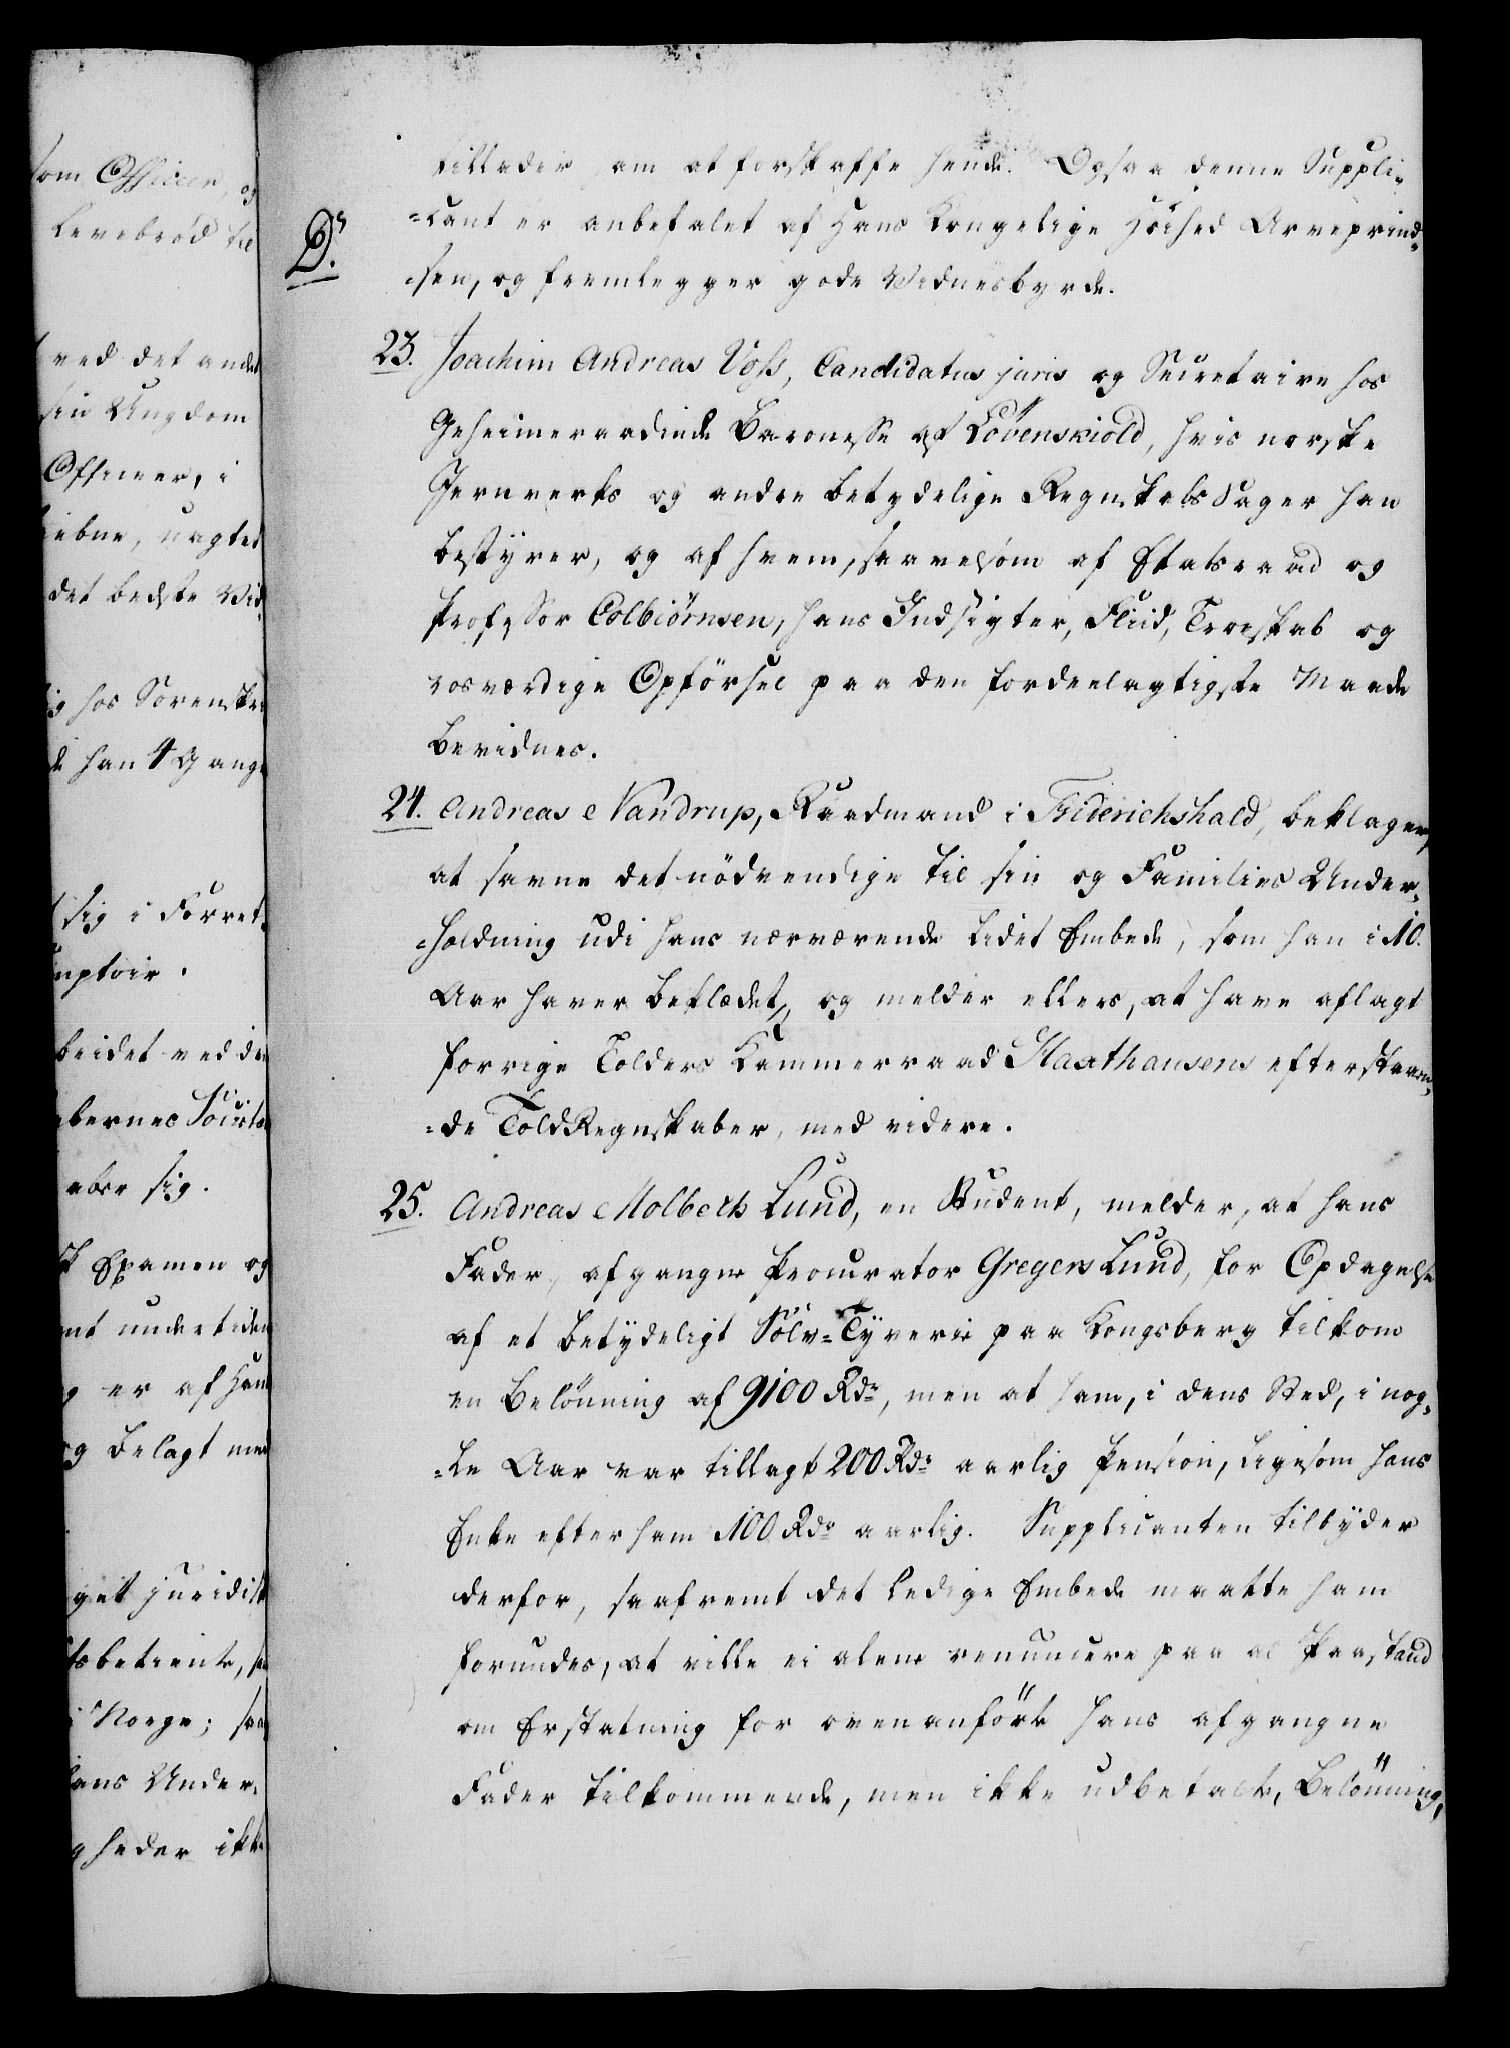 som Officeer, og
Levebrød til
ved det andet
sin Ungdom
Officeer, i
uagtet
det bedste Vid-
hos Sorenskri
han 4 Gange
sig i Forret-
mptoir.
beidet ved de
sig.
Examen og
undertiden
er af Han
og belagt med
get juridisk
sbetiente,
i Norge; saa
hans Under-
gheder ikke
D.r
tillader ham at forskaffe hende. Ogsaa denne Suppli-
=cant er anbefalet af Hans Kongelige Höihed Arveprind-
sen, og fremlegger gode Vidnesbyrde.
23. Joachim Andreas Voss, Candidatus juris og Secretaire hos
Geheimeraadinde Baronesse af Lövenskiold, hvis norske
Jernverks og andre betydelige Regnskabs Sager han
bestyrer, og af hvem, saavelsom af Etatsraad og
Professor Colbiørnsen, hans Indsigter, Fliid, Troeskab og
rosværdige Opförsel paa den fordeelagtigste Maade
bevidnes.
24. Andreas Vandrup, Raadmand i Friderichshald, beklager,
at savne det nödvendige til sin og Families Under-
=holdning udi hans nærværende lidet Embede, som han i 10.
Aar haver beklædet, og melder ellers, at have aflagt
forrige Tolders Kammerraad Haxthausens efterstaaen-
=de ToldRegnskaber, med videre.
25. Andreas Molbech Lund, en Student, melder, at hans
Fader, afgangne Procurator Gregers Lund, for Opdagelse
af et betydeligt Sölv=Tyverie paa Kongsberg tilkom
en Belönning af 9100 Rdr, men at ham, i dens Sted, i nog-
=le Aar var tillagt 200 Rdr aarlig Pension, ligesom hans
Enke efter ham 100 Rdr aarlig. Supplicanten tilbyder
derfor, saafremt det ledige Embede maatte ham
forundes, at ville ei alene renuncere paa al Paastand
om Erstatning for ovenanförte hans afgangne
Fader tilkommende, men ikke udbetalte, Belönning,